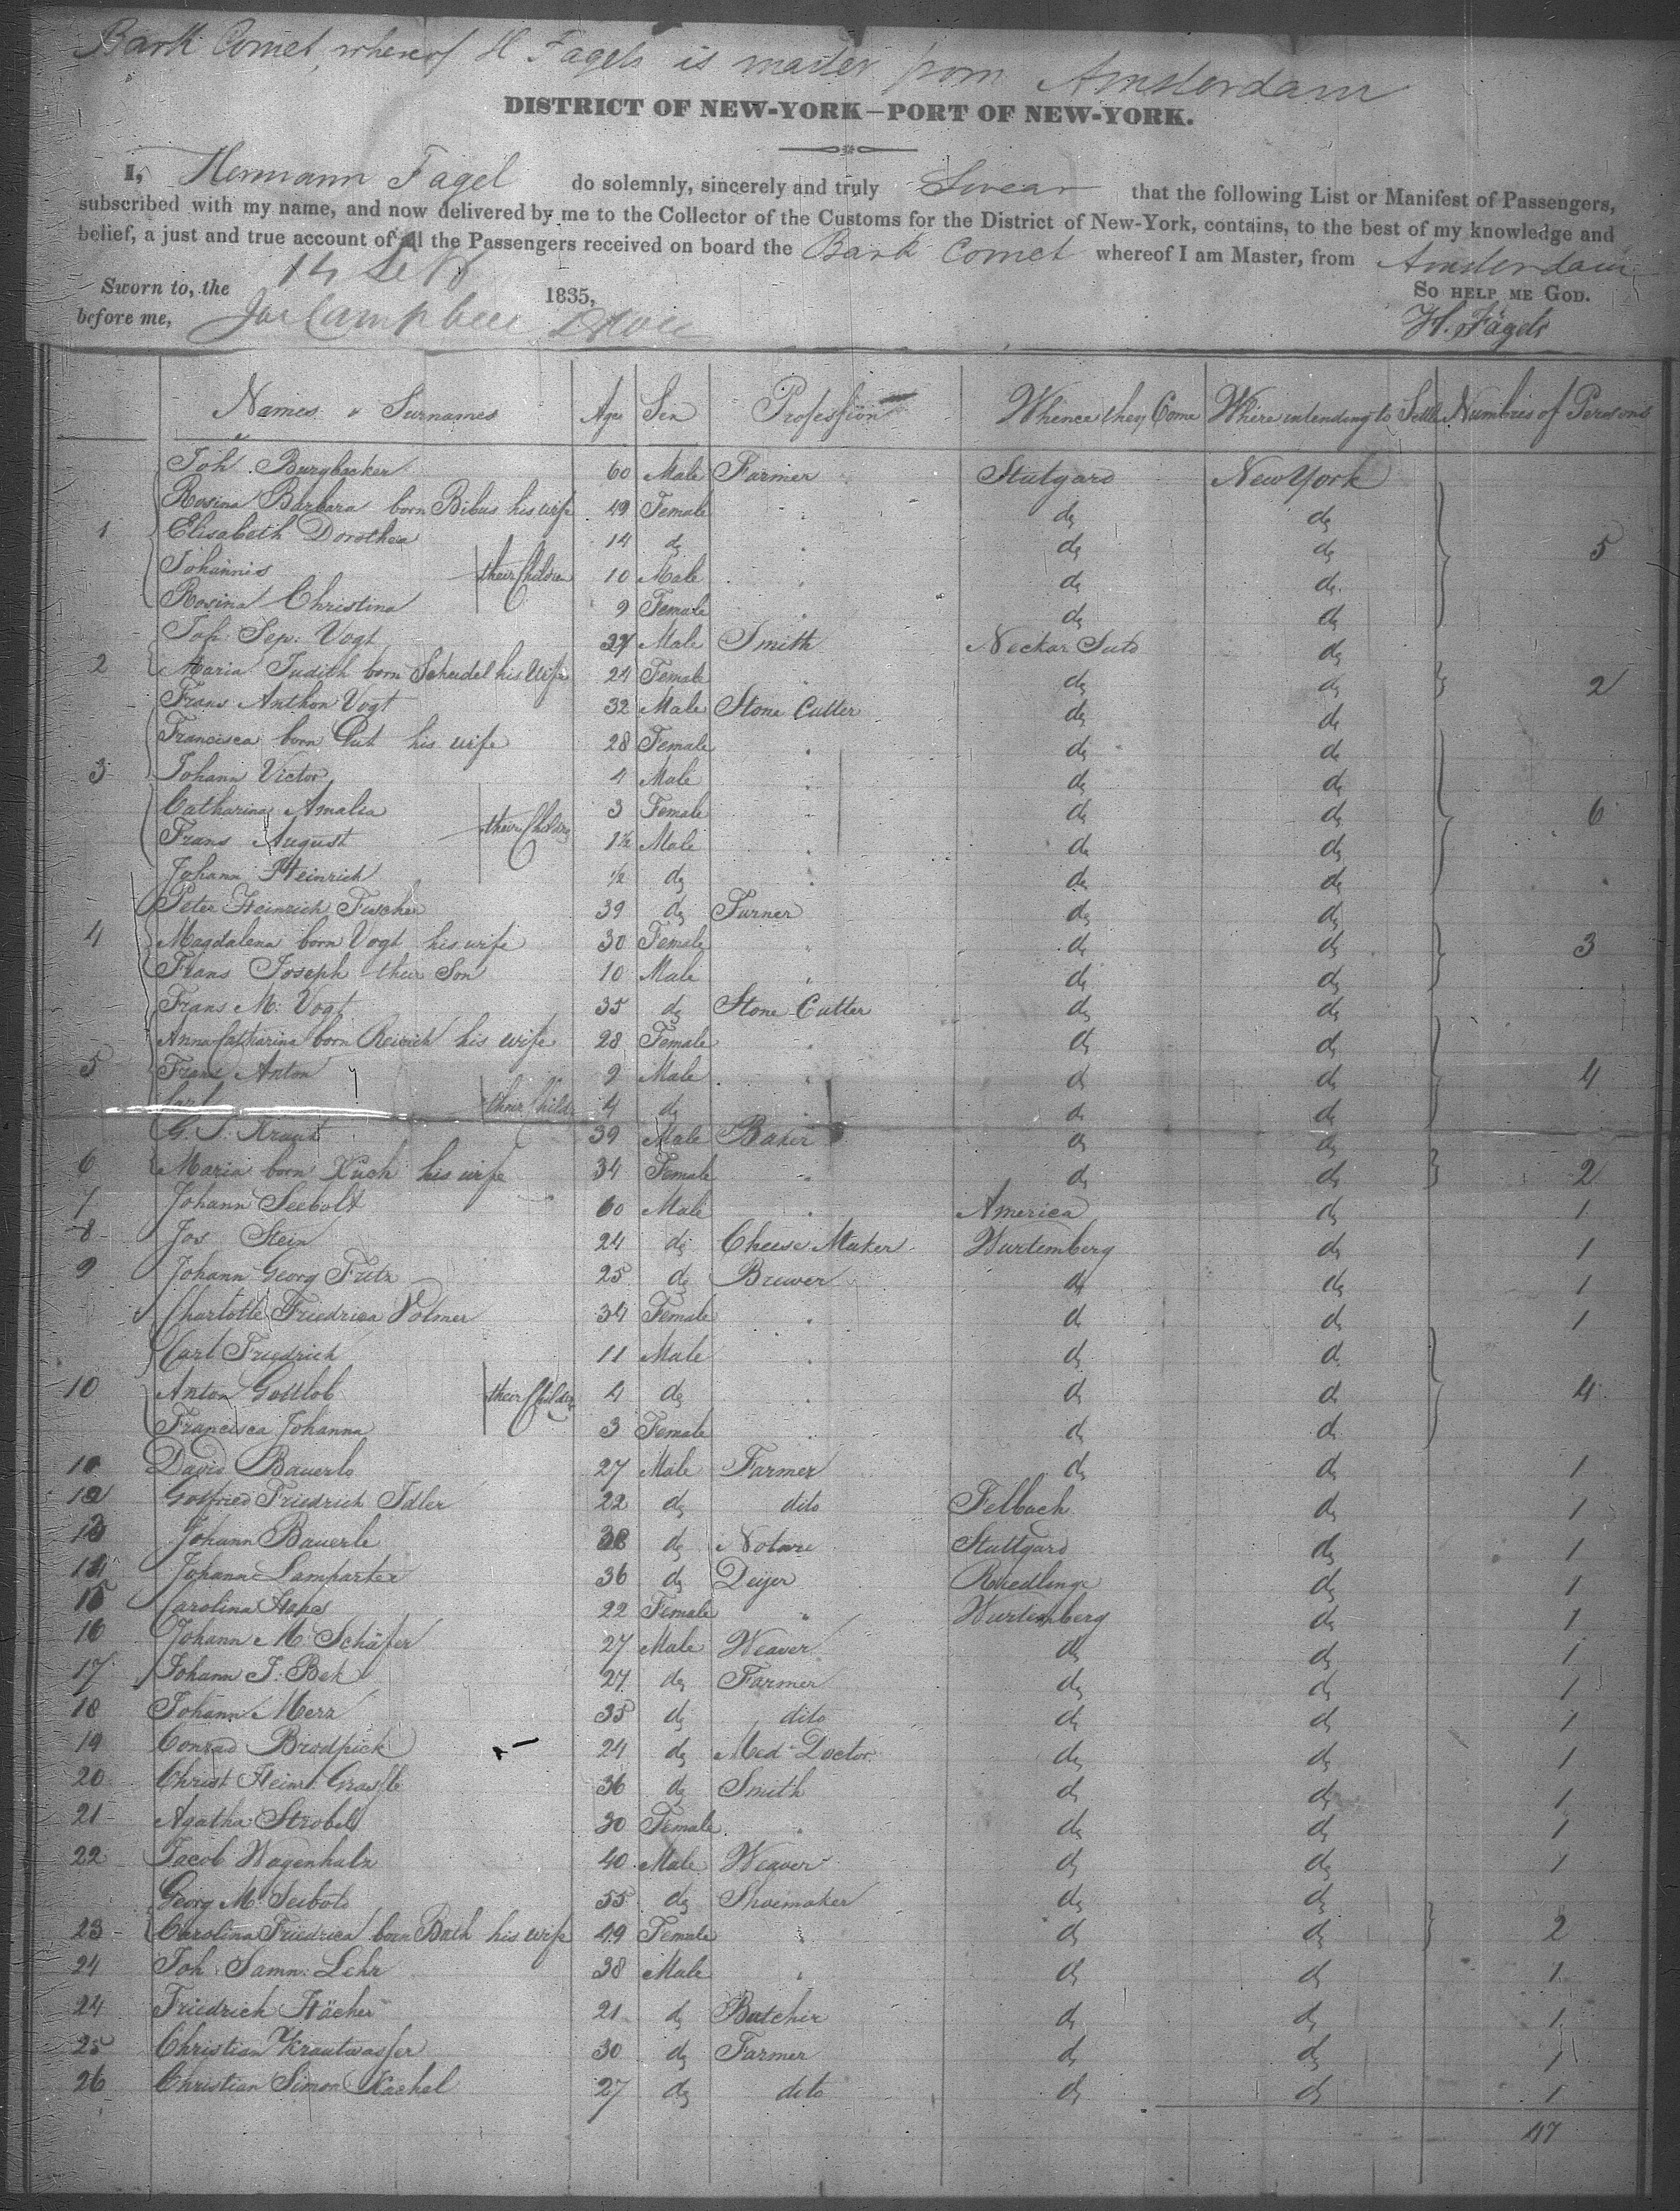 Bark Comet, whereof H Fagels is master from Amsterdam
DISTRICT OF NEW-YORK—PORT OF NEW-YORK.
I, Hermann Fagel do solemnly, sincerely and truly Swear that the following List or Manifest of Passengers,
subscribed with my name, and now delivered by me to the Collector of the Customs for the District of New-York, contains, to the best of my knowledge and
belief, a just and true account of all the Passengers received on board the Bark Comet whereof I am Master, from Amsterdam
Sworn to, the 14 Sept 1835, So HELP ME GOD.
before me, Jas Campbell H. Fägels
Names & Surnames Age Sex Profession Whence they Come Where intending to Settle Numbres of Persons
Joh. Burgbacker 60 Male Farmer Stutgard New York
Rosina Barbara born Bibus his wife 49 Female " do do
1 Elisabeth Dorothea 14 do " do do 5
Johannis their Children 10 Male " do do
Rosina Christina 9 Female " do do
Joh. Sep. Vogt 27 Male Smith Neckar Suto do
2 Maria Judith born Scheidel his Wife 24 Female " do do 2
Frans Anthon Vogt 32 Male Stone Cutter do do
Francisca born Gut his wife 28 Female " do do
3 Johann Victor 4 Male " do do
Catharina Amalia their Children 3 Female " do do 6
Frans August 1½ Male " do do
Johann Heinrich ½ do " do do
Peter Heinrich Fischer 39 do Turner do do
4 Magdalena born Vogt his wife 30 Female " do do 3
Frans Joseph their Son 10 Male " do do
Frans M. Vogt 35 do Stone Cutter do do
Anna Catharina born his wife 28 Female " do do
5 Frans Anton 9 Male " do do 4
Carl their Child 4 do " do do
G. J. Kraut 39 Male Baker do do
6 Maria born Kuch his wife 34 Female " do do 2
7 Johann Seebolt 60 Male " America do 1
8 Jos Stein 24 do Cheese Maker Wurtemberg do 1
9 Johann Georg Fritz 25 do Brewer do do 1
Charlotte Friedrica Volmer 34 Female " do do 1
Carl Friedrich 11 Male " do do
10 Anton Gottlob their Children 4 do " do do 4
Francisca Johanna 3 Female " do do
10 David Bauerle 27 Male Farmer do do 1
12 Gotfried Friedrich Idler 22 do dito Felbach do 1
13 Johann Bauerle 38 do Notare Stuttgard do 1
14 Johann Lamparter 36 do Deijer Riedlinge do 1
15 Carolina 22 Female " Wurtemberg do 1
16 Johann M. Schäfer 27 Male Weaver do do 1
17 Johann J. Bek 27 do Farmer do do 1
18 Johann Merz 35 do dito do do 1
19 Conrad Brodpick 24 do Med. Doctor do do 1
20 Christ Heinr. 36 do Smith do do 1
21 Agatha Strobel 30 Female " do do 1
22 Jacob Wagenhalz 40 Male Weaver do do 1
Georg M. Seibold 55 do Shoemaker do do
23 Carolina Friedrica born Bath his wife 49 Female " do do 2
24 Joh. Samn. Lehr 38 Male " do do 1
24 Friedrich Häcker 21 do Butcher do do 1
25 Christian Krautwasser 30 do Farmer do do 1
26 Christian Simon Kachel 27 do dito do do 1
47